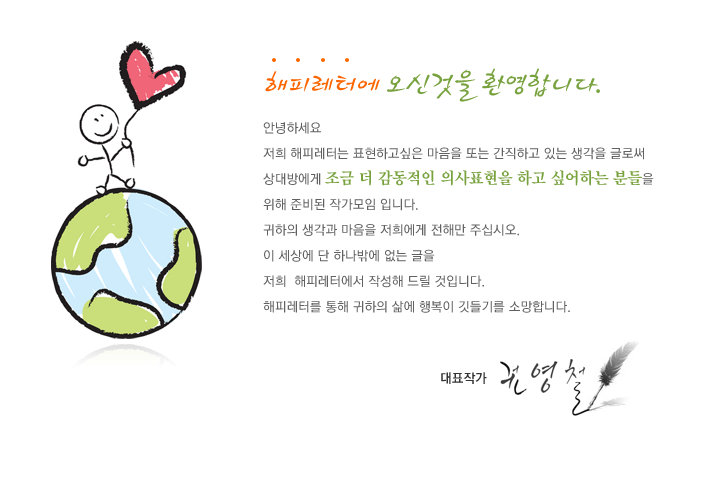 해피레터에 오신것을 환영합니다.
안녕하세요
저희 해피레터는 표현하고싶은 마음을 또는 간직하고 있는 생각을 글로써
상대방에게 조금 더 감동적인 의사표현을 하고 싶어하는 분들을
위해 준비된 작가모임 입니다.
귀하의 생각과 마음을 저희에게 전해만 주십시오.
이 세상에 단 하나밖에 없는 글을
저희 해피레터에서 작성해 드릴 것입니다.
해피레터를 통해 귀하의 삶에 행복이 깃들기를 소망합니다.
대표작가 권영철